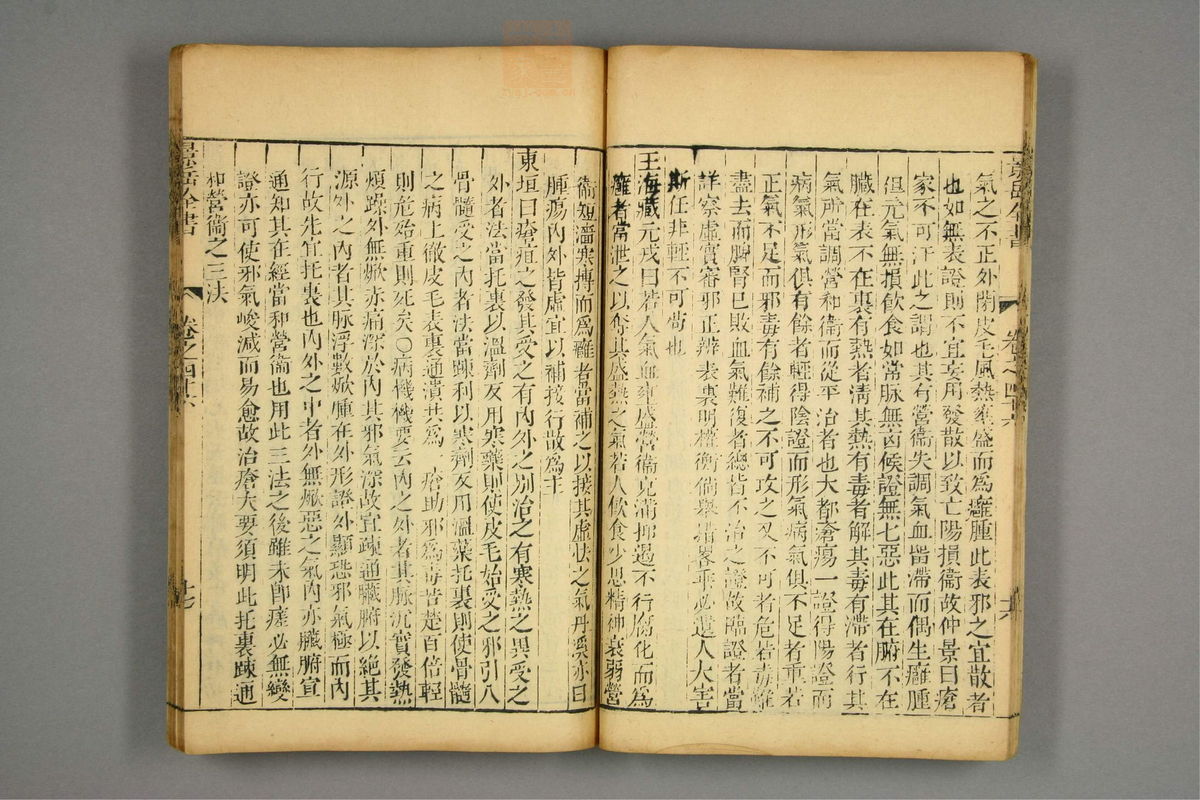 景岳全書 卷之四十六 十六
氣之不正外閉皮毛風熱壅盛而爲癰腫此表邪之宜散者
也如無表證則不宜妄用發散以致亡陽損衞故仲景曰瘡
家不可汗此之謂也其有營衞失調氣血留滯而偶生癰腫
但元氣無損飲食如常脉無凶候證無七惡此其在腑不在
臟在表不在裏有熱者淸其熱有毒者解其毒有滯者行其
氣所當調營和衞而從平治者也大都瘡瘍一證得陽證而
病氣形氣俱有餘者輕得陰證而形氣病氣俱不足者重若
正氣不足而邪毒有餘補之不可攻之又不可者危若毒雖
盡去而脾腎已敗血氣難復者總皆不治之證故臨證者當
詳察虛實審邪正辨表裏明權衡倘舉措畧乖必遺人大害
斯任非輕不可苟也
王海藏元戎曰若人氣血壅盛營衞充滿抑遏不行腐化而爲
癰者當泄之以奪其盛熱之氣若人飲食少思精神衰弱營
衞短濇寒搏而爲癰者當補之以接其虛怯之氣丹溪亦曰
腫瘍內外皆虛宜以補接行散爲主
東垣曰瘡疽之發其受之有內外之別治之有寒熱之異受之
外者法當托裏以溫劑反用寒藥則使皮毛始受之邪引入
骨髓受之內者法當踈利以寒劑反用溫藥托裏則使骨髓
之病上徹皮毛表裏通潰共爲一瘡助邪爲毒苦楚百倍輕
則危殆重則死矣○病機機要云內之外者其脉沉實發熱
煩躁外無焮赤痛深於內其邪氣深故宜疎通臟腑以絶其
源外之內者其脉浮數焮腫在外形證外顯恐邪氣極而內
行故先宜托裏也內外之中者外無焮惡之氣內亦臟腑宣
通知其在經當和營衞也用此三法之後雖未卽瘥必無變
證亦可使邪氣峻減而易愈故治瘡大要須明此托裏踈通
和營衞之三法
景岳全書 卷之四十六 十七